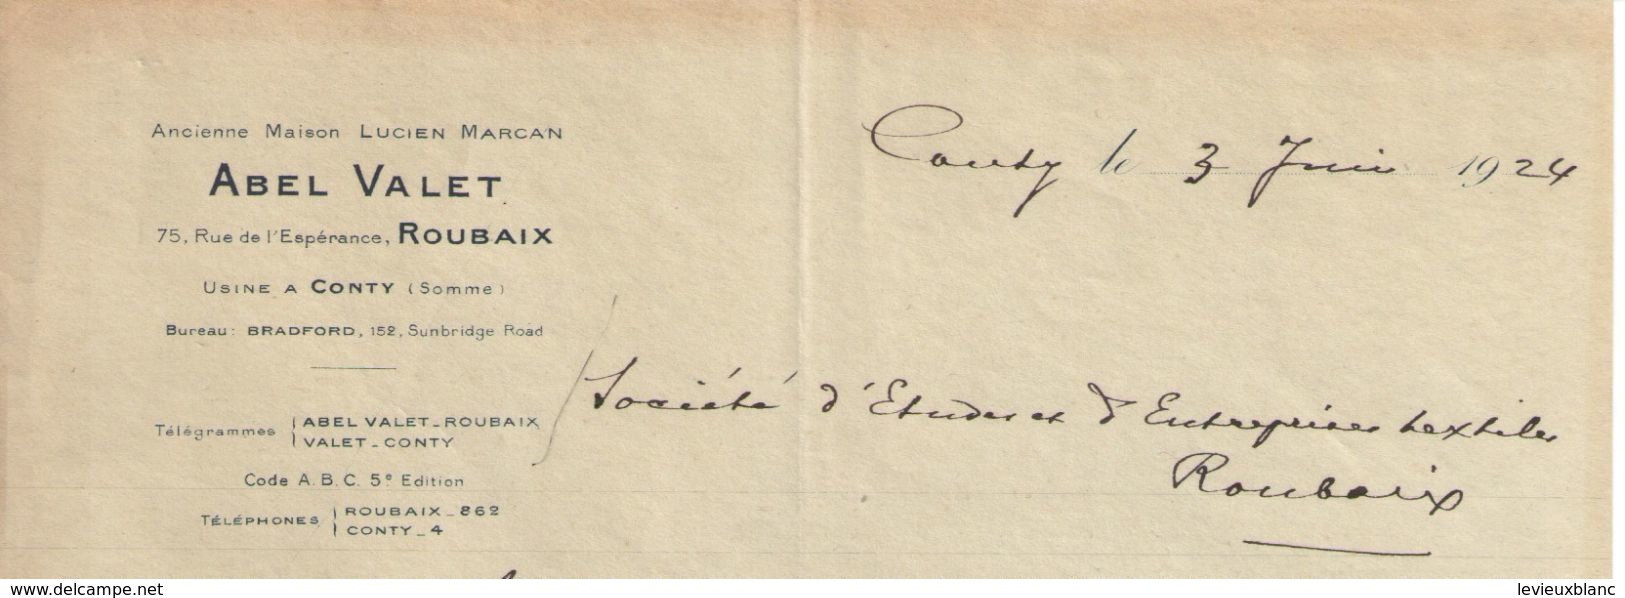 Ancienne Maison LUCIEN MARCAN
ABEL VALET
75, Rue de l'Espérance, ROUBAIX
USINE A CONTY (Somme)
Bureau: BRADFORD, 152, Sunbridge Road
Télégrammes { ABEL VALET_ROUBAIX
VALET_CONTY
Code A.B.C. 5e Edition
TÉLÉPHONES { ROUBAIX_862
CONTY_4
Conty le 3 Juin 1924
Société d'Etudes et d'Entreprises textiles
Roubaix
www.delcampe.net
levieuxblanc